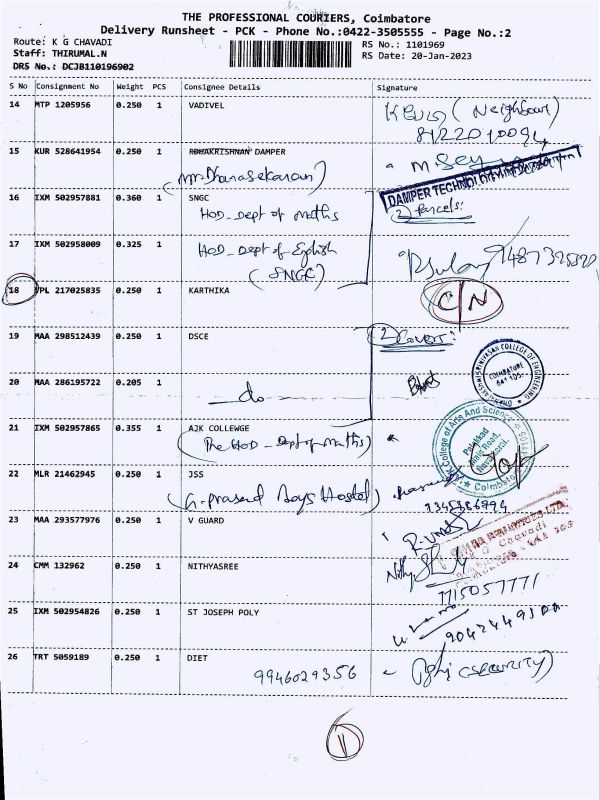 THE PROFESSIONAL COURIERS, Coimbatore
Delivery Runsheet - PCK - Phone No.:0422-3505555 - Page No.:2
Route: K G CHAVADI
Staff: THIRUMAL.N
DRS No.: DCJB110196902
RS No.: 1101969
RS Date: 20-Jan-2023
S No Consignment No Weight PCS Consignee Details Signature
14 MTP 1205956 0.250 1 VADIVEL
(Neighbour)
15 KUR 528641954 0.250 1 RDHAKRISHNAN DAMPER
(Mr. Dhanasekaran)
DAMPER TECHNOLOGY
16 IXM 502957881 0.360 1 SNGC
HOD - Dept of Maths
(2) Parcels:
17 IXM 502958009 0.325 1 HOD - Dept of English
(SNGC)
18 VPL 217025835 0.250 1 KARTHIKA
C/N
19 MAA 298512439 0.250 1 DSCE
(2) Covers:
COLLEGE OF ENGINEERING
COIMBATORE
641 105
20 MAA 286195722 0.205 1 —do—
21 IXM 502957865 0.355 1 AJK COLLEWGE
(The HOD - Dept of Maths)
College of Arts And Science
Palakkad
Main Road,
Coimbatore
22 MLR 21462945 0.250 1 JSS
(G. Prasad Boys Hostel)
23 MAA 293577976 0.250 1 V GUARD
24 CMM 132962 0.250 1 NITHYASREE
7715057771
25 IXM 502954826 0.250 1 ST JOSEPH POLY
26 TRT 5059189 0.250 1 DIET
9946029356
(security)
1